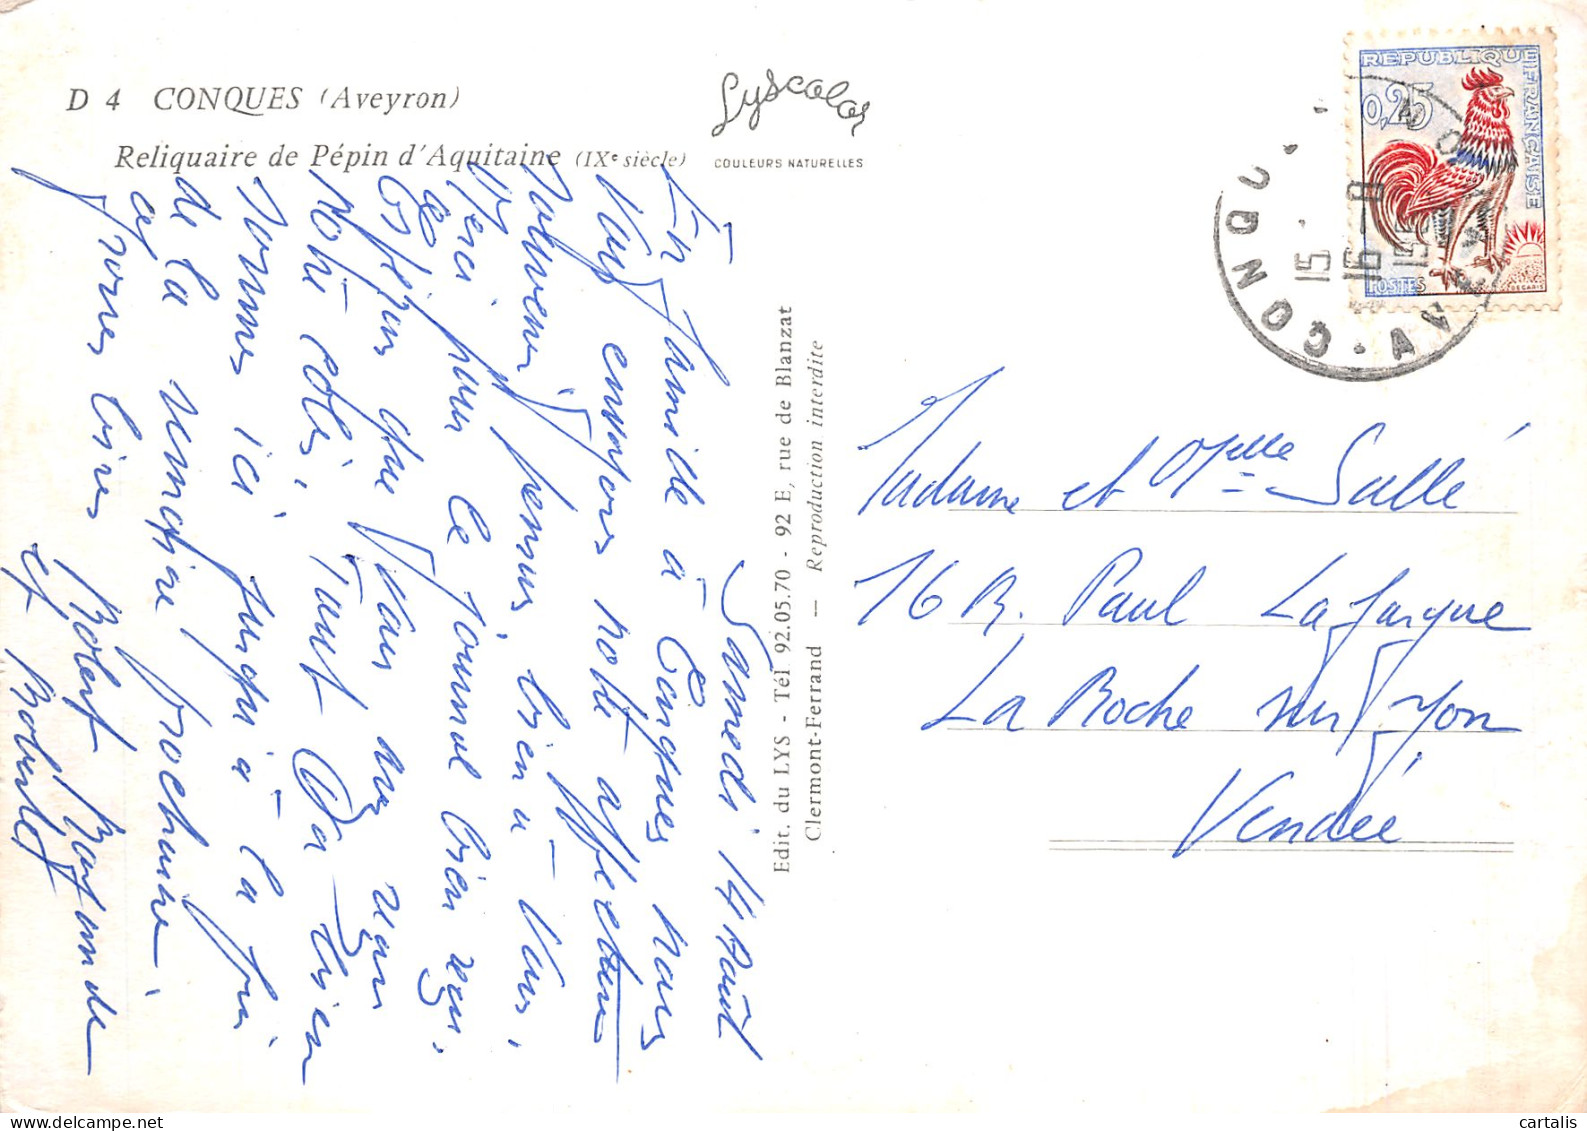 D 4 CONQUES (Aveyron)
Reliquaire de Pépin d'Aquitaine (IXe siècle)
Lyscolor
COULEURS NATURELLES
REPUBLIQUE FRANÇAISE
0,25
POSTES
DECARIS
CONQU
AV
15
16 - 8
Samedi 14 Août
En famille à Conques nous
vous envoyons notre affectueux
souvenir, pensons bien à vous,
merci pour le journal bien reçu.
que vous
Noté côtés, tout va bien
sommes ici jusqu'à la fin
de la semaine prochaine
grosses bises
Robert
et
Edit. du LYS - Tél 92.05.70 - 92 E, rue de Blanzat
Clermont-Ferrand — Reproduction interdite
Madame et Melle Sallé
16 R. Paul Lafargue
La Roche sur Yon
Vendée
cartalis